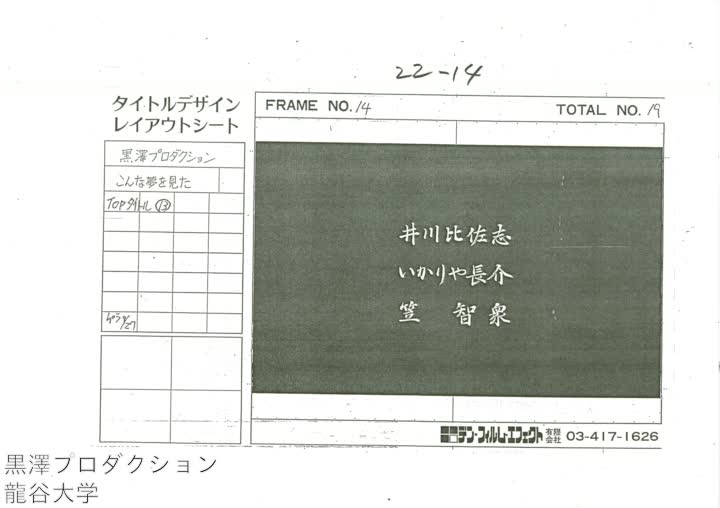 22-14
タイトルデザイン
レイアウトシート
FRAME NO. 14
TOTAL NO. 19
黒澤プロダクション
こんな夢を見た
TOPタイトル ⑬
井川比佐志
いかりや長介
笠 智衆
デン・フィルム・エフェクト 有限会社 03-417-1626
黒澤プロダクション
龍谷大学